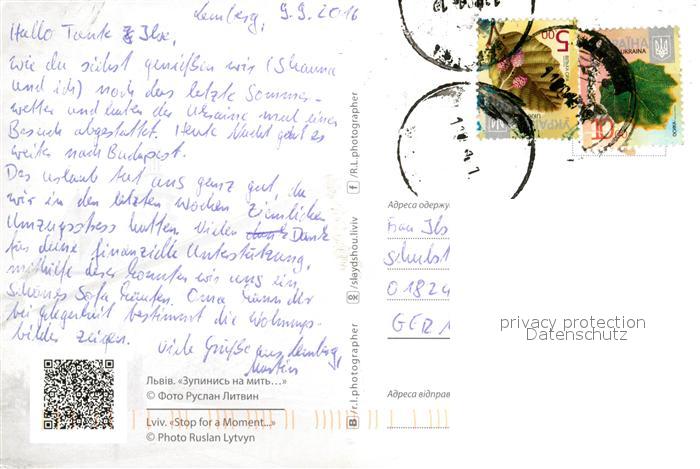 Lemberg, 9.9.2016
Hallo Tante Ilse,
wie du siehst genießen wir (Shanna
und ich) noch das letzte Sommer-
wetter und haben der Ukraine mal einen
Besuch abgestattet. Heute Nacht geht es
weiter nach Budapest.
Der Urlaub tut uns ganz gut, da
wir in den letzten Wochen ziemlichen
Umzugsstress hatten. Vielen Dank
für deine finanzielle Unterstützung,
mithilfe derer konnten wir uns ein
schönes Sofa kaufen. Oma kann dir
bei Gelegenheit bestimmt die Wohnungs-
bilder zeigen.
Viele Grüße aus Lemberg,
Martin
Львів. «Зупинись на мить…»
© Фото Руслан Литвин
Lviv. «Stop for a Moment...»
© Photo Ruslan Lytvyn
f /R.l.photographer
/slaydshou.lviv
B /r.l.photographer
5.00
УКРАЇНА
UKRAINE
Адреса одержу
Frau Ils
Schubst
01824
GER
Адреса відправ
privacy protection
Datenschutz